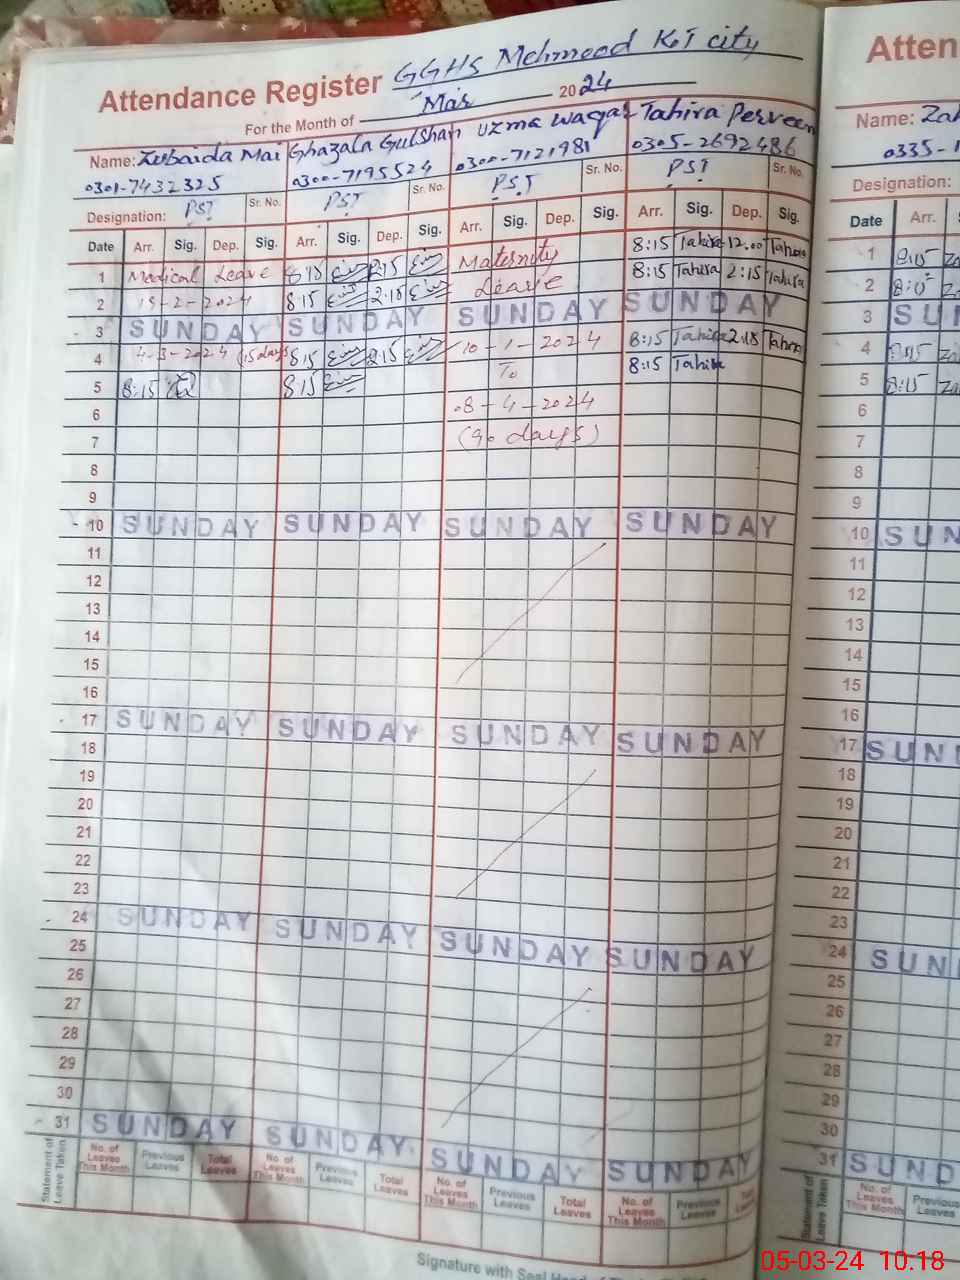 Attendance Register GGHS Mehmood Kot city
For the Month of Mar 2024
Name: Zubaida Mai Ghazala Gulshan Uzma Waqar Tahira Perveen
0301-7432325 0300-7195524 0300-7121981 0305-2692486
Designation: PST Sr. No. PST Sr. No. PST Sr. No. PST Sr. No.
Date Arr. Sig. Dep. Sig. Arr. Sig. Dep. Sig. Arr. Sig. Dep. Sig. Arr. Sig. Dep. Sig.
1 Medical Leave 8:15 2:15 Maternity 8:15 Tahira 12.00 Tahira
2 -2-2024 8:15 2:15 Leave 8:15 Tahira 2:15 Tahira
3 SUNDAY SUNDAY SUNDAY SUNDAY
4 4-3-2024 (15 days) 8:15 2:15 10-1-2024 8:15 Tahira 2:15 Tahira
5 8:15 8:15 To 8:15 Tahira
6 08-4-2024
7 (90 days)
8
9
10 SUNDAY SUNDAY SUNDAY SUNDAY
11
12
13
14
15
16
17 SUNDAY SUNDAY SUNDAY SUNDAY
18
19
20
21
22
23
24 SUNDAY SUNDAY SUNDAY SUNDAY
25
26
27
28
29
30
31 SUNDAY SUNDAY SUNDAY SUNDAY
Statement of Leave Taken No. of Leaves This Month Previous Leaves Total Leaves No. of Leaves This Month Previous Leaves Total Leaves No. of Leaves This Month Previous Leaves Total Leaves No. of Leaves This Month Previous Leaves
Signature with Seal Head of
Atten
Name: Zah
0335-1
Designation:
Date Arr. S
1 8:15 Za
2 8:15 Za
3 SUN
4 8:15 Za
5 8:15 Za
6
7
8
9
10 SUN
11
12
13
14
15
16
17 SUN
18
19
20
21
22
23
24 SUN
25
26
27
28
29
30
31 SUND
Statement of Leave Taken No. of Leaves This Month Previous Leaves
05-03-24 10.18